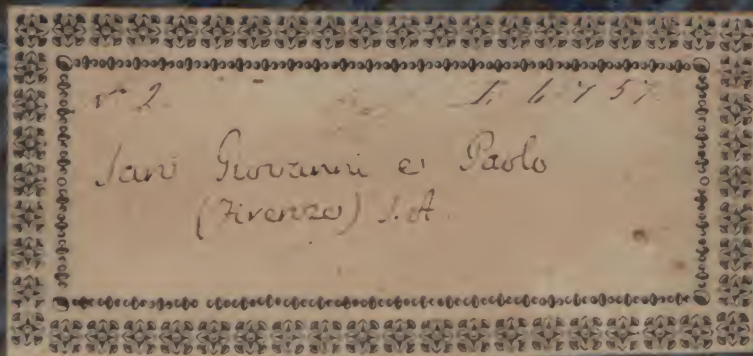 n° 2.
Sani Giovanni e Paolo
(Firenze) S. A.